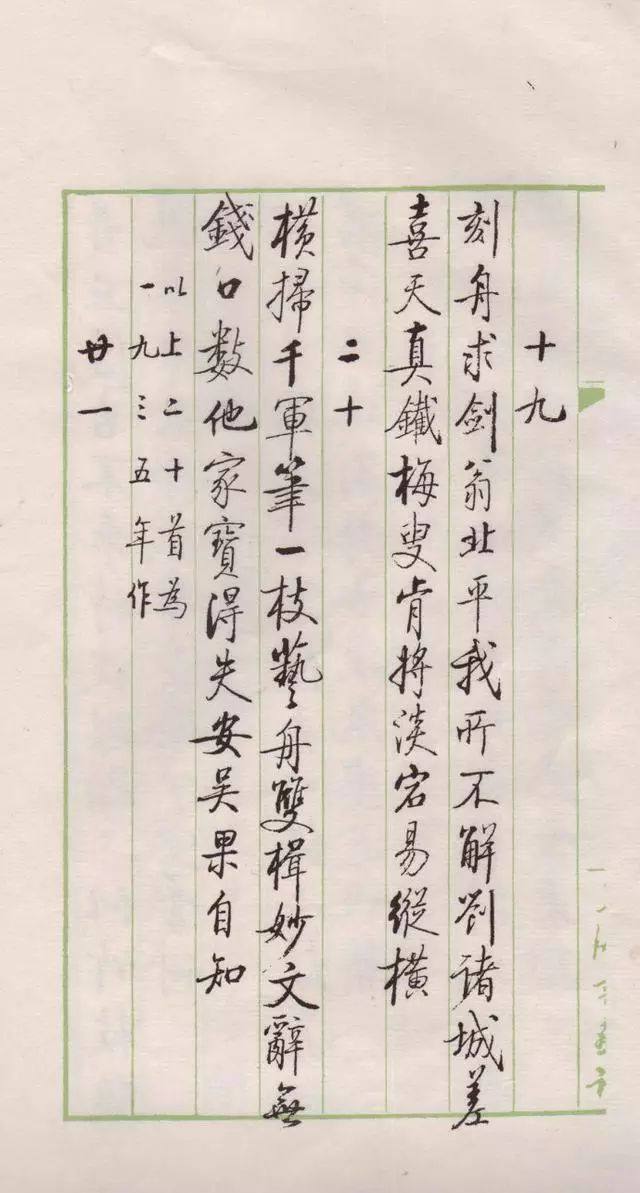 十九
刻舟求劍翁北平我所不解劉諸城差
喜天真鐵梅叟肯將淡宕易縱橫
二十
橫掃千軍筆一枝藝舟雙楫妙文辭無
錢口數他家寶得失安吳果自知
以上二十首為
一九三五年作
廿一